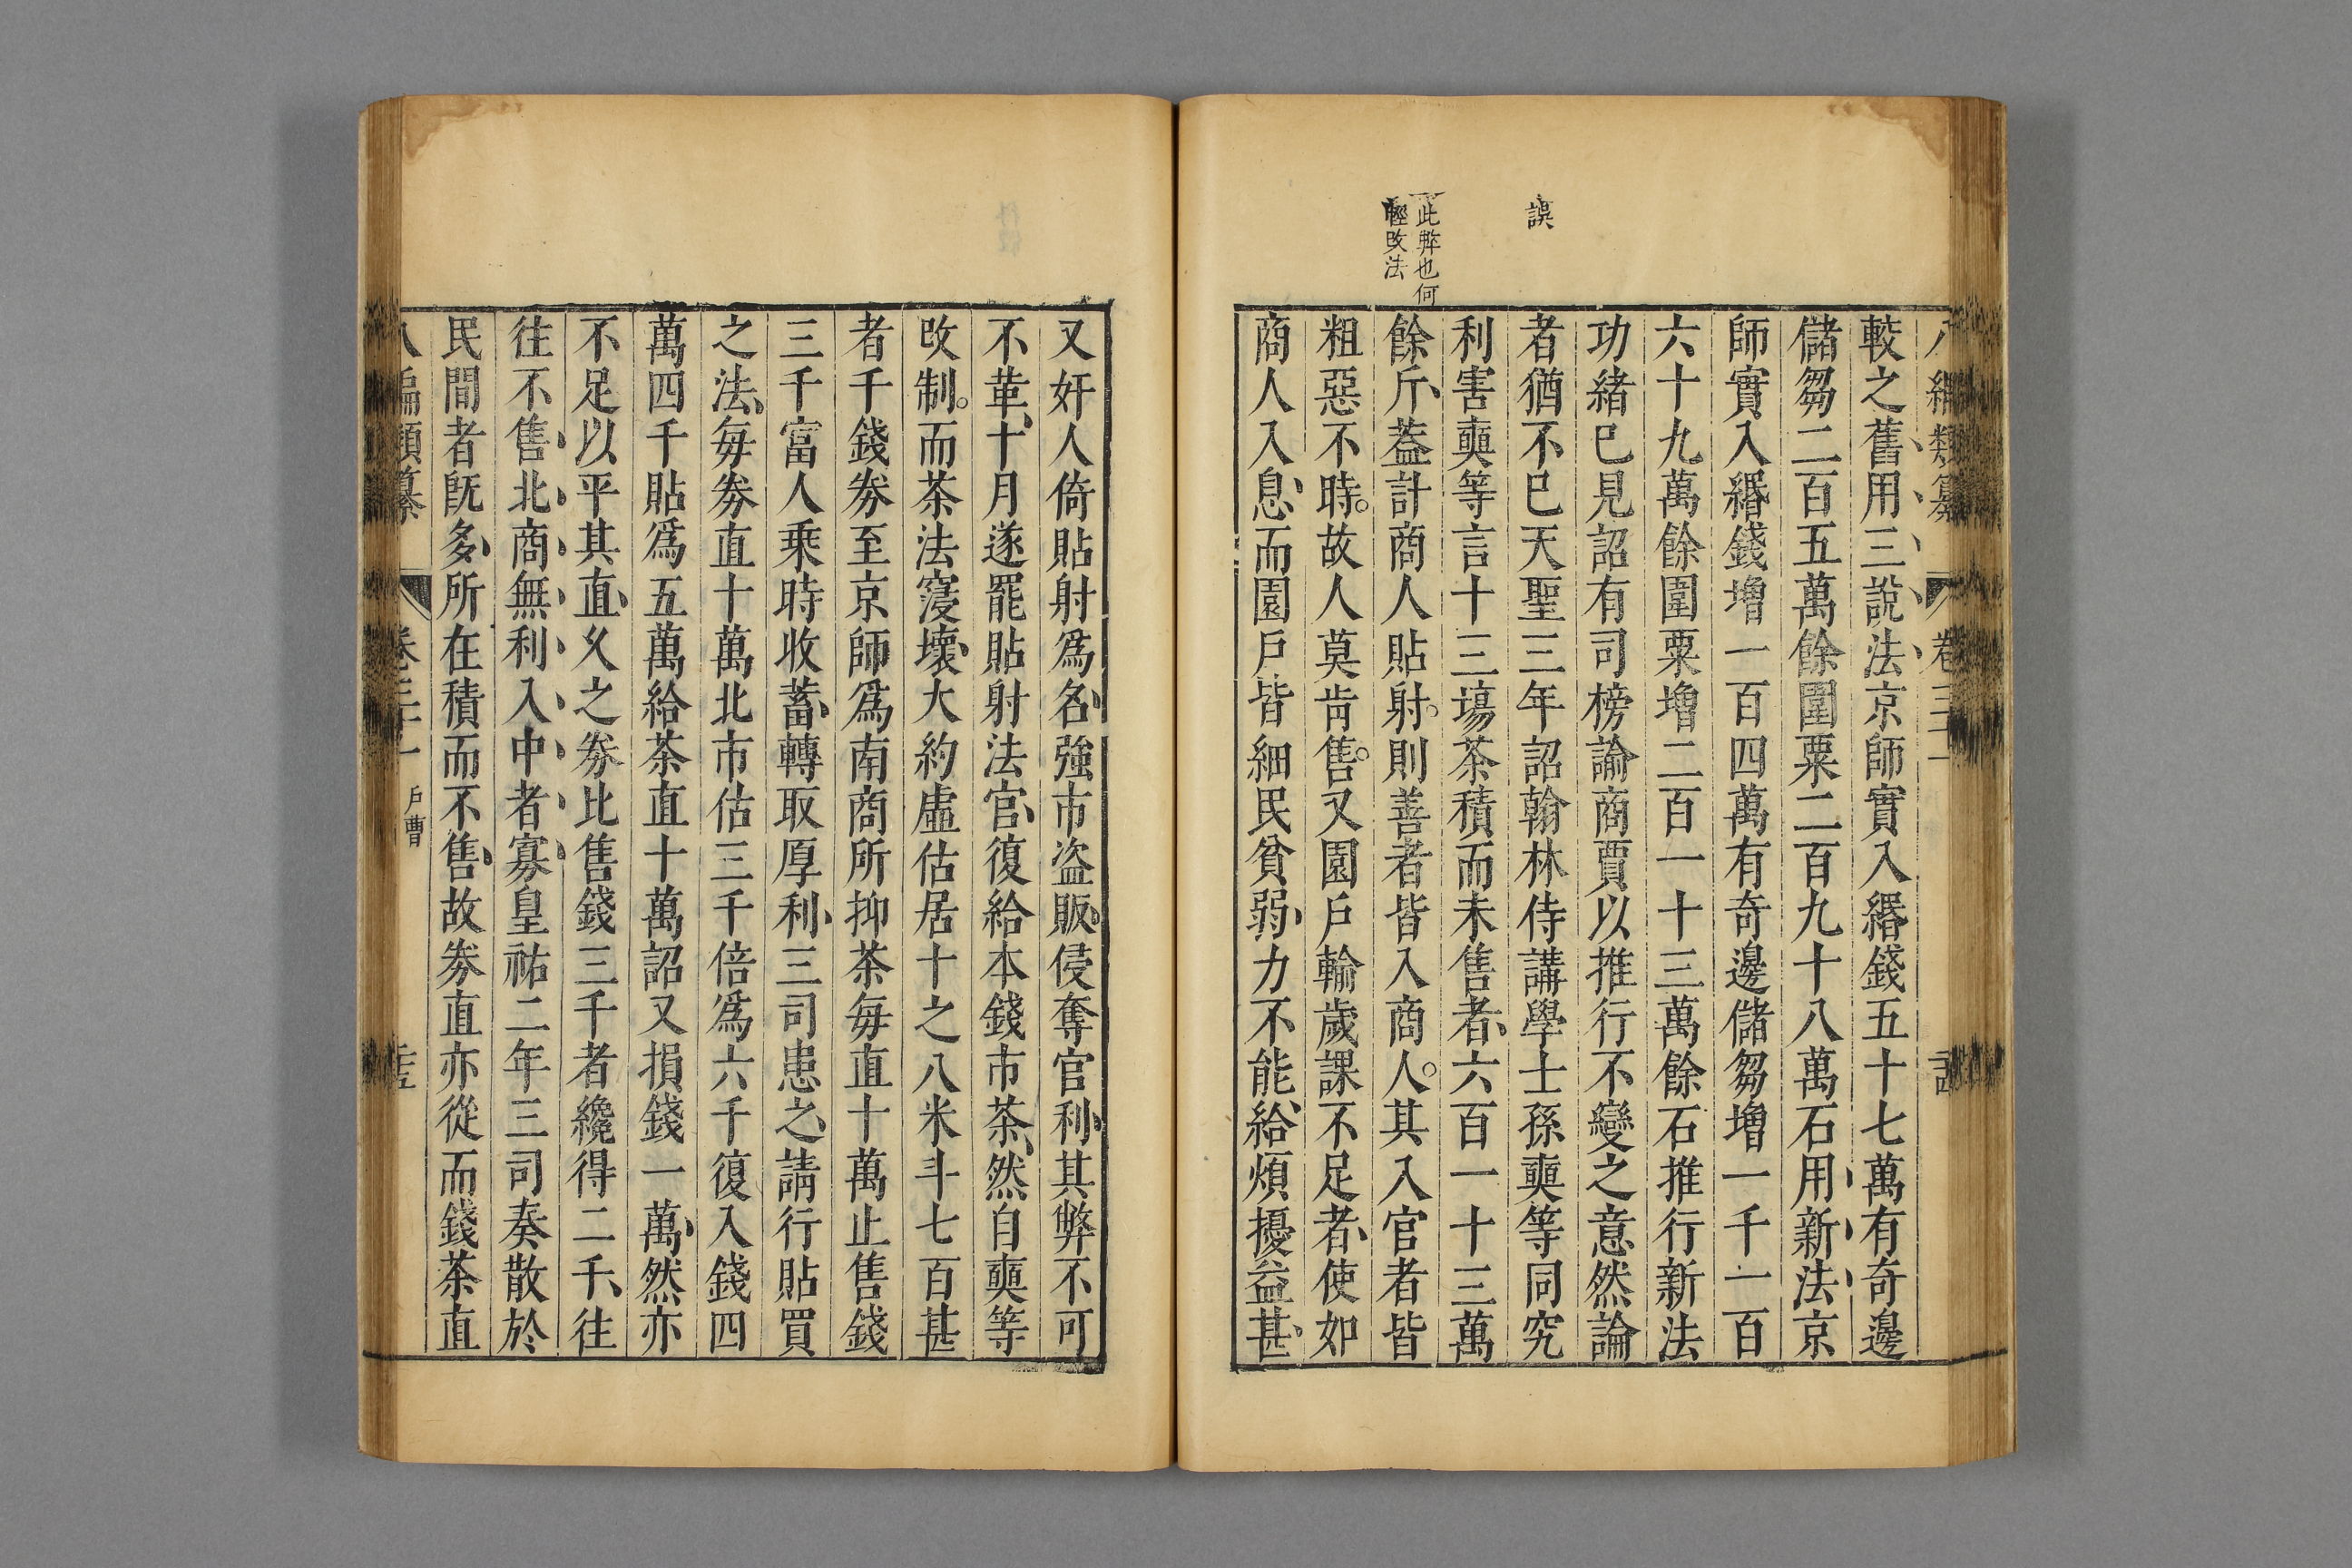 誤
此弊也何
輕改法
較之舊用三說法京師實入緡錢五十七萬有奇邊
儲芻二百五萬餘圍粟二百九十八萬石用新法京
師實入緡錢增一百四萬有奇邊儲芻增一千一百
六十九萬餘圍粟增二百一十三萬餘石推行新法
功緒已見詔有司榜諭商賈以推行不變之意然論
者猶不已天聖三年詔翰林侍講學士孫奭等同究
利害奭等言十三場茶積而未售者六百一十三萬
餘斤葢計商人貼射則善者皆入商人其入官者皆
粗惡不時故人莫肯售又園戶輸歲課不足者使如
商人入息而園戶皆細民貧弱力不能給煩擾益甚
又奸人倚貼射爲名強市盜販侵奪官利其弊不可
不革十月遂罷貼射法官復給本錢市茶然自奭等
改制而茶法寖壞大約虛估居十之八米斗七百甚
者千錢券至京師爲南商所抑茶每直十萬止售錢
三千富人乘時收蓄轉取厚利三司患之請行貼買
之法每券直十萬北市估三千倍爲六千復入錢四
萬四千貼爲五萬給茶直十萬詔又損錢一萬然亦
不足以平其直久之券比售錢三千者纔得二千往
往不售北商無利入中者寡皇祐二年三司奏散於
民間者旣多所在積而不售故券直亦從而錢茶直
八編類纂 卷三十一 戶曹